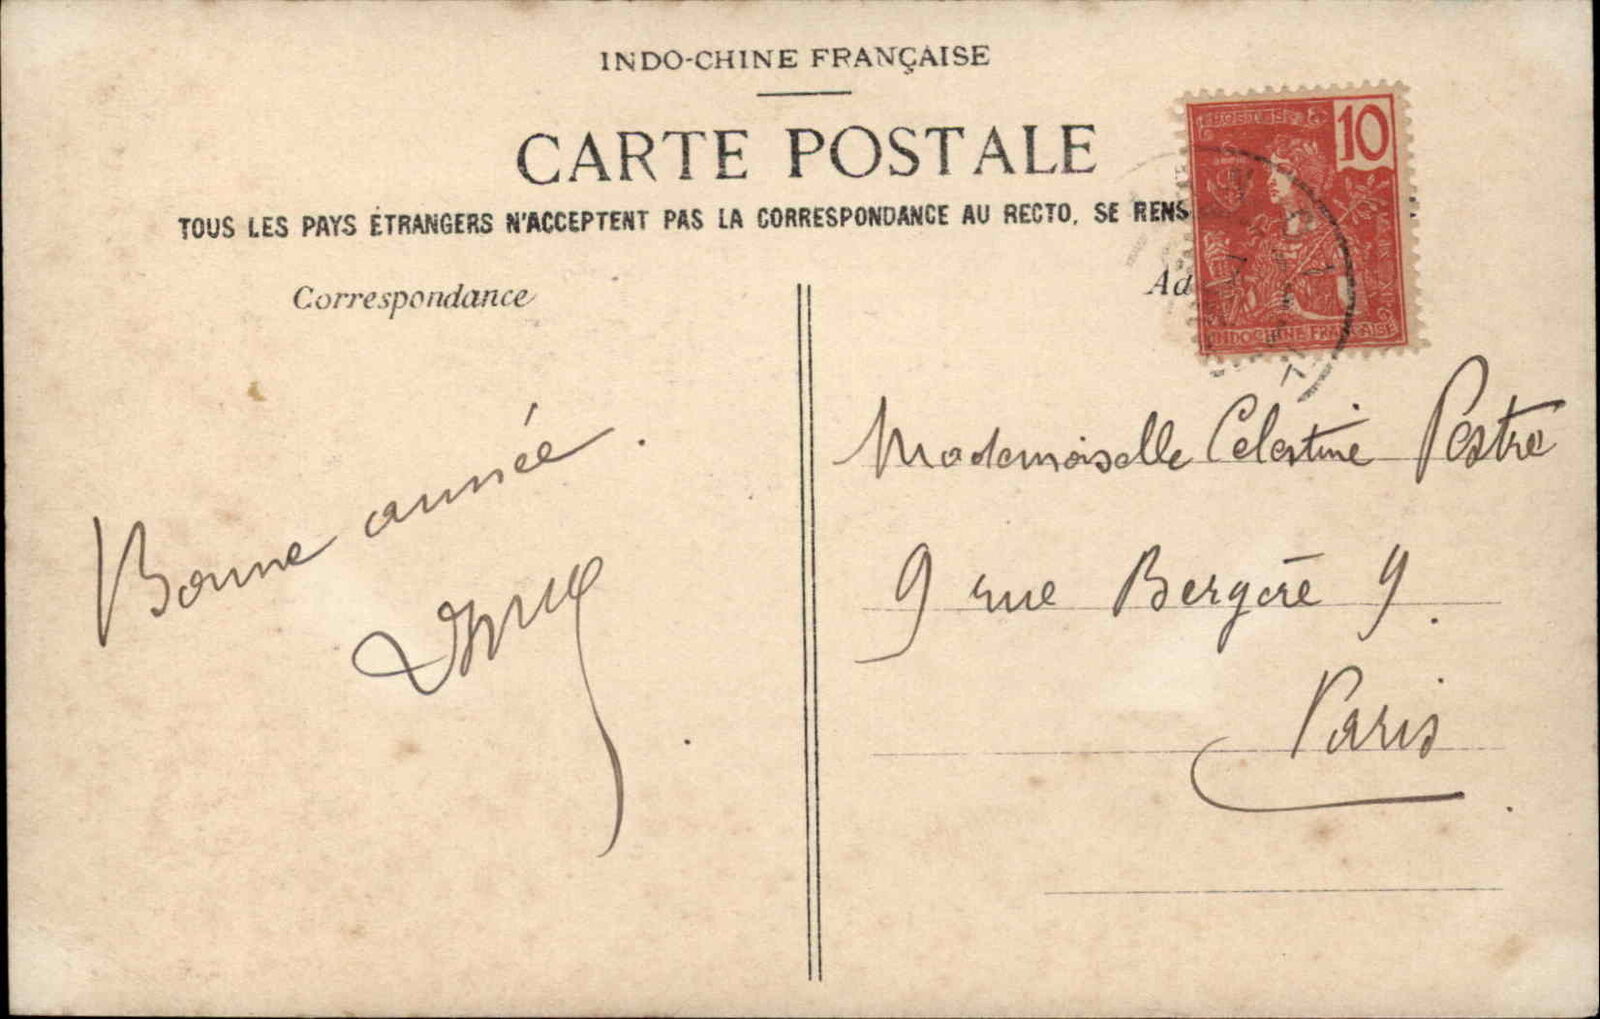 INDO-CHINE FRANÇAISE
CARTE POSTALE
TOUS LES PAYS ÉTRANGERS N'ACCEPTENT PAS LA CORRESPONDANCE AU RECTO, SE RENS
Correspondance
Ad
POSTES
10
INDO-CHINE FRANÇAISE
Bonne année.
Mademoiselle Célestine Pestre
9 rue Bergère 9.
Paris